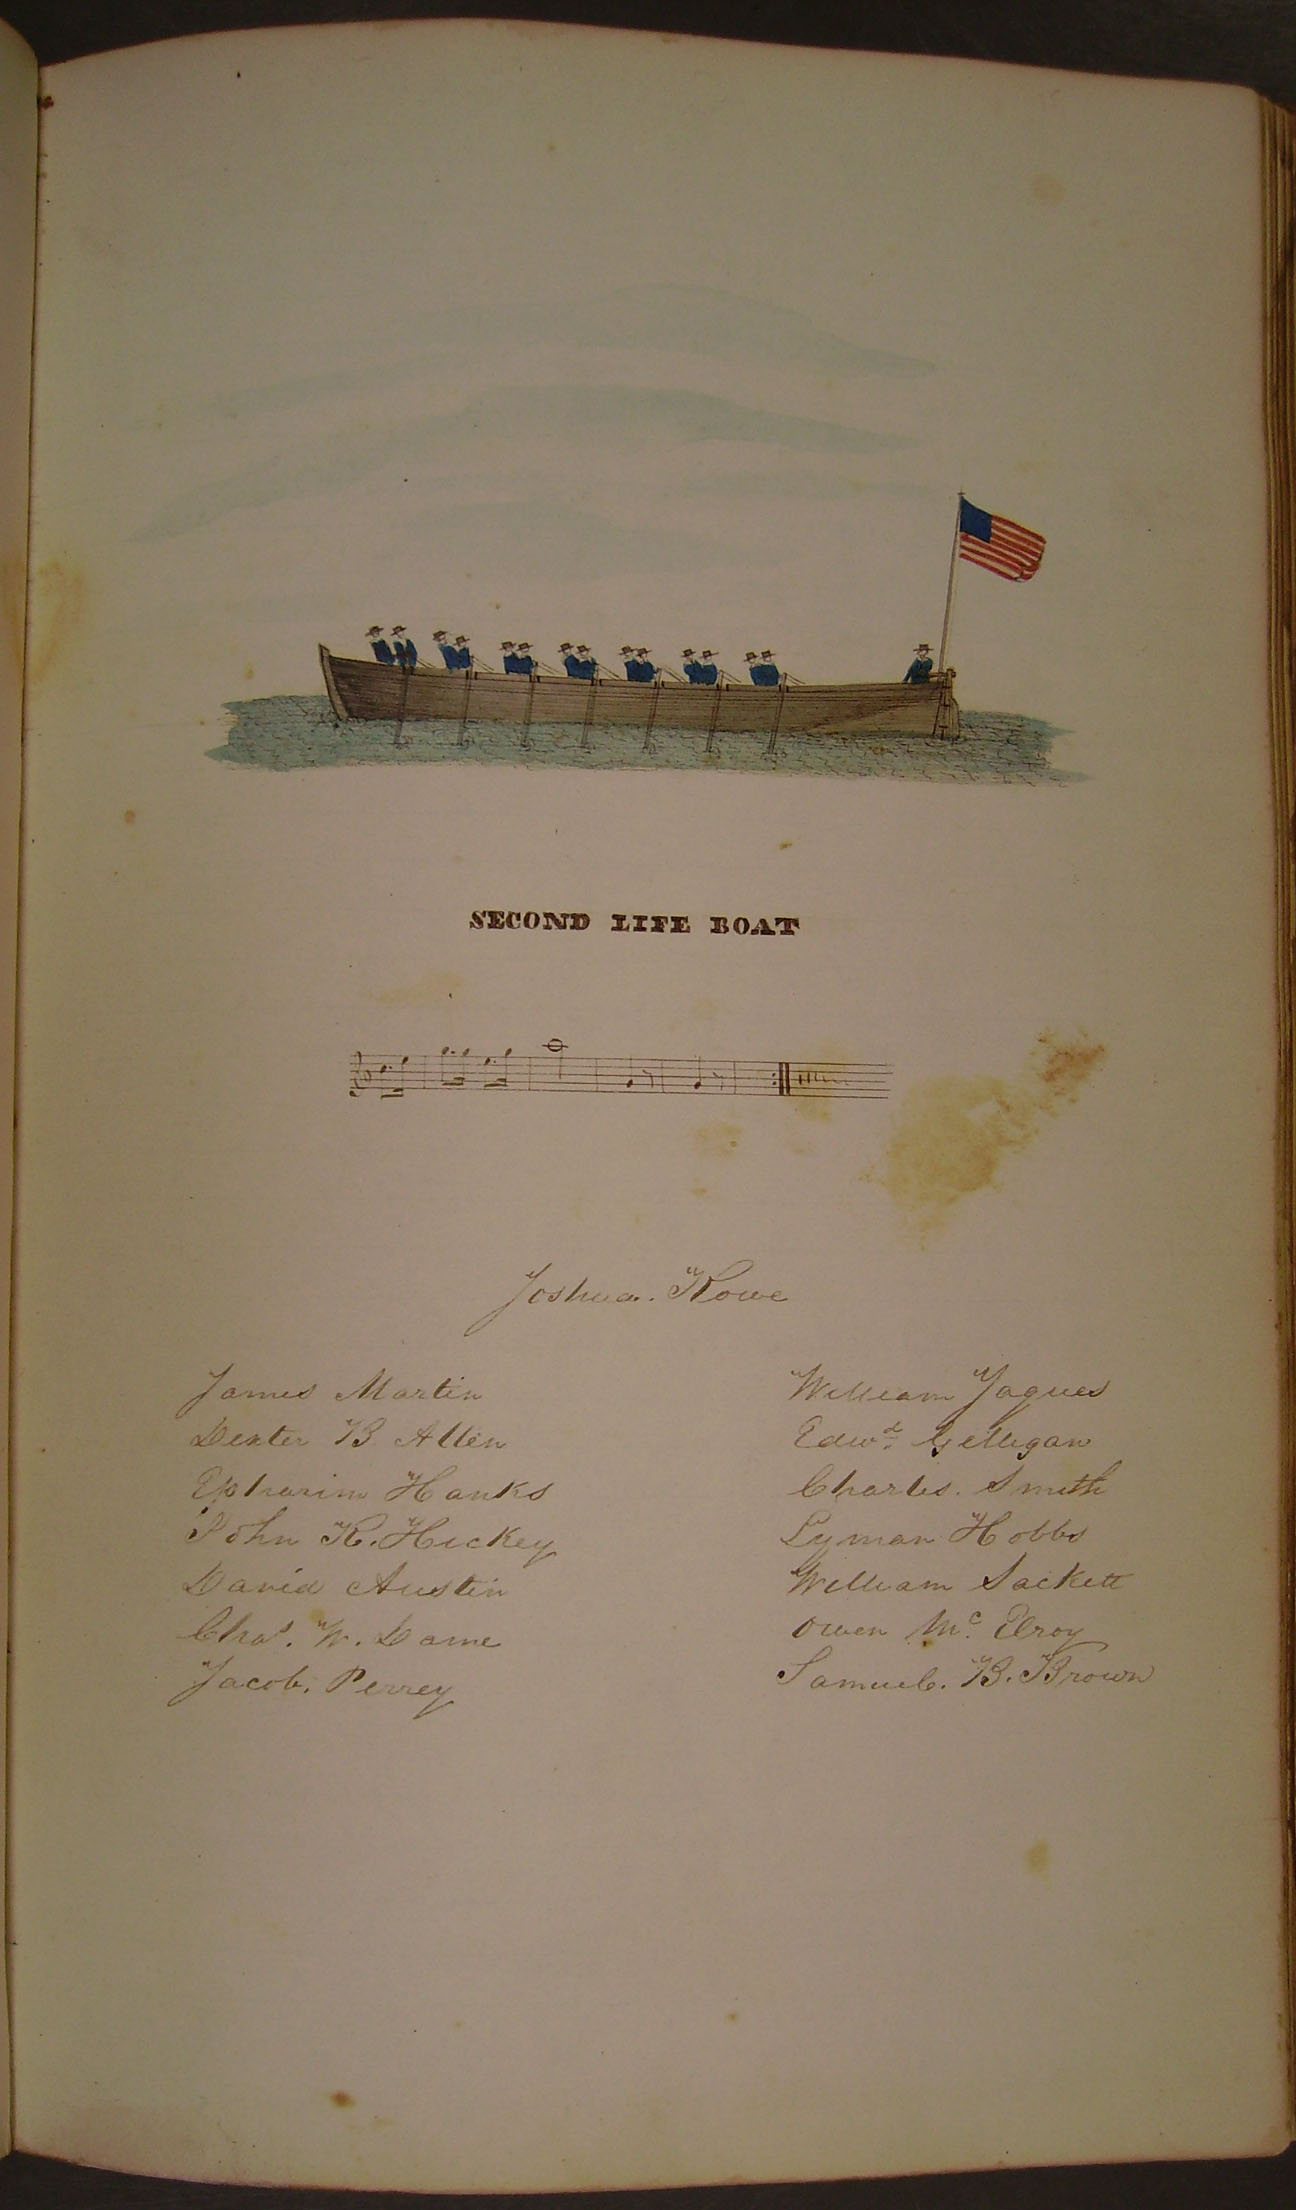 SECOND LIFE BOAT
Joshua. Rowe
James Martin
Dexter B Allen
Ephraim Hanks
John K. Hickey
David Austin
Chas. W. Dame
Jacob. Perrey
William Jaques
Edwd. Gelligan
Charles. Smith
Lyman Hobbs
William Sackett
Owen Mc. Elroy
Samuel. B. Brown